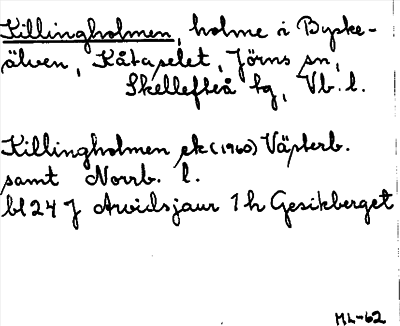 Killingholmen, holme i Byske-
älven, Kåtaselet, Jörns sn,
Skellefteå tg, Vb. l.
Killingholmen ek (1960) Västerb.
samt Norrb. l.
bl 24 J Arvidsjaur 1 h Gesikberget
ML-62